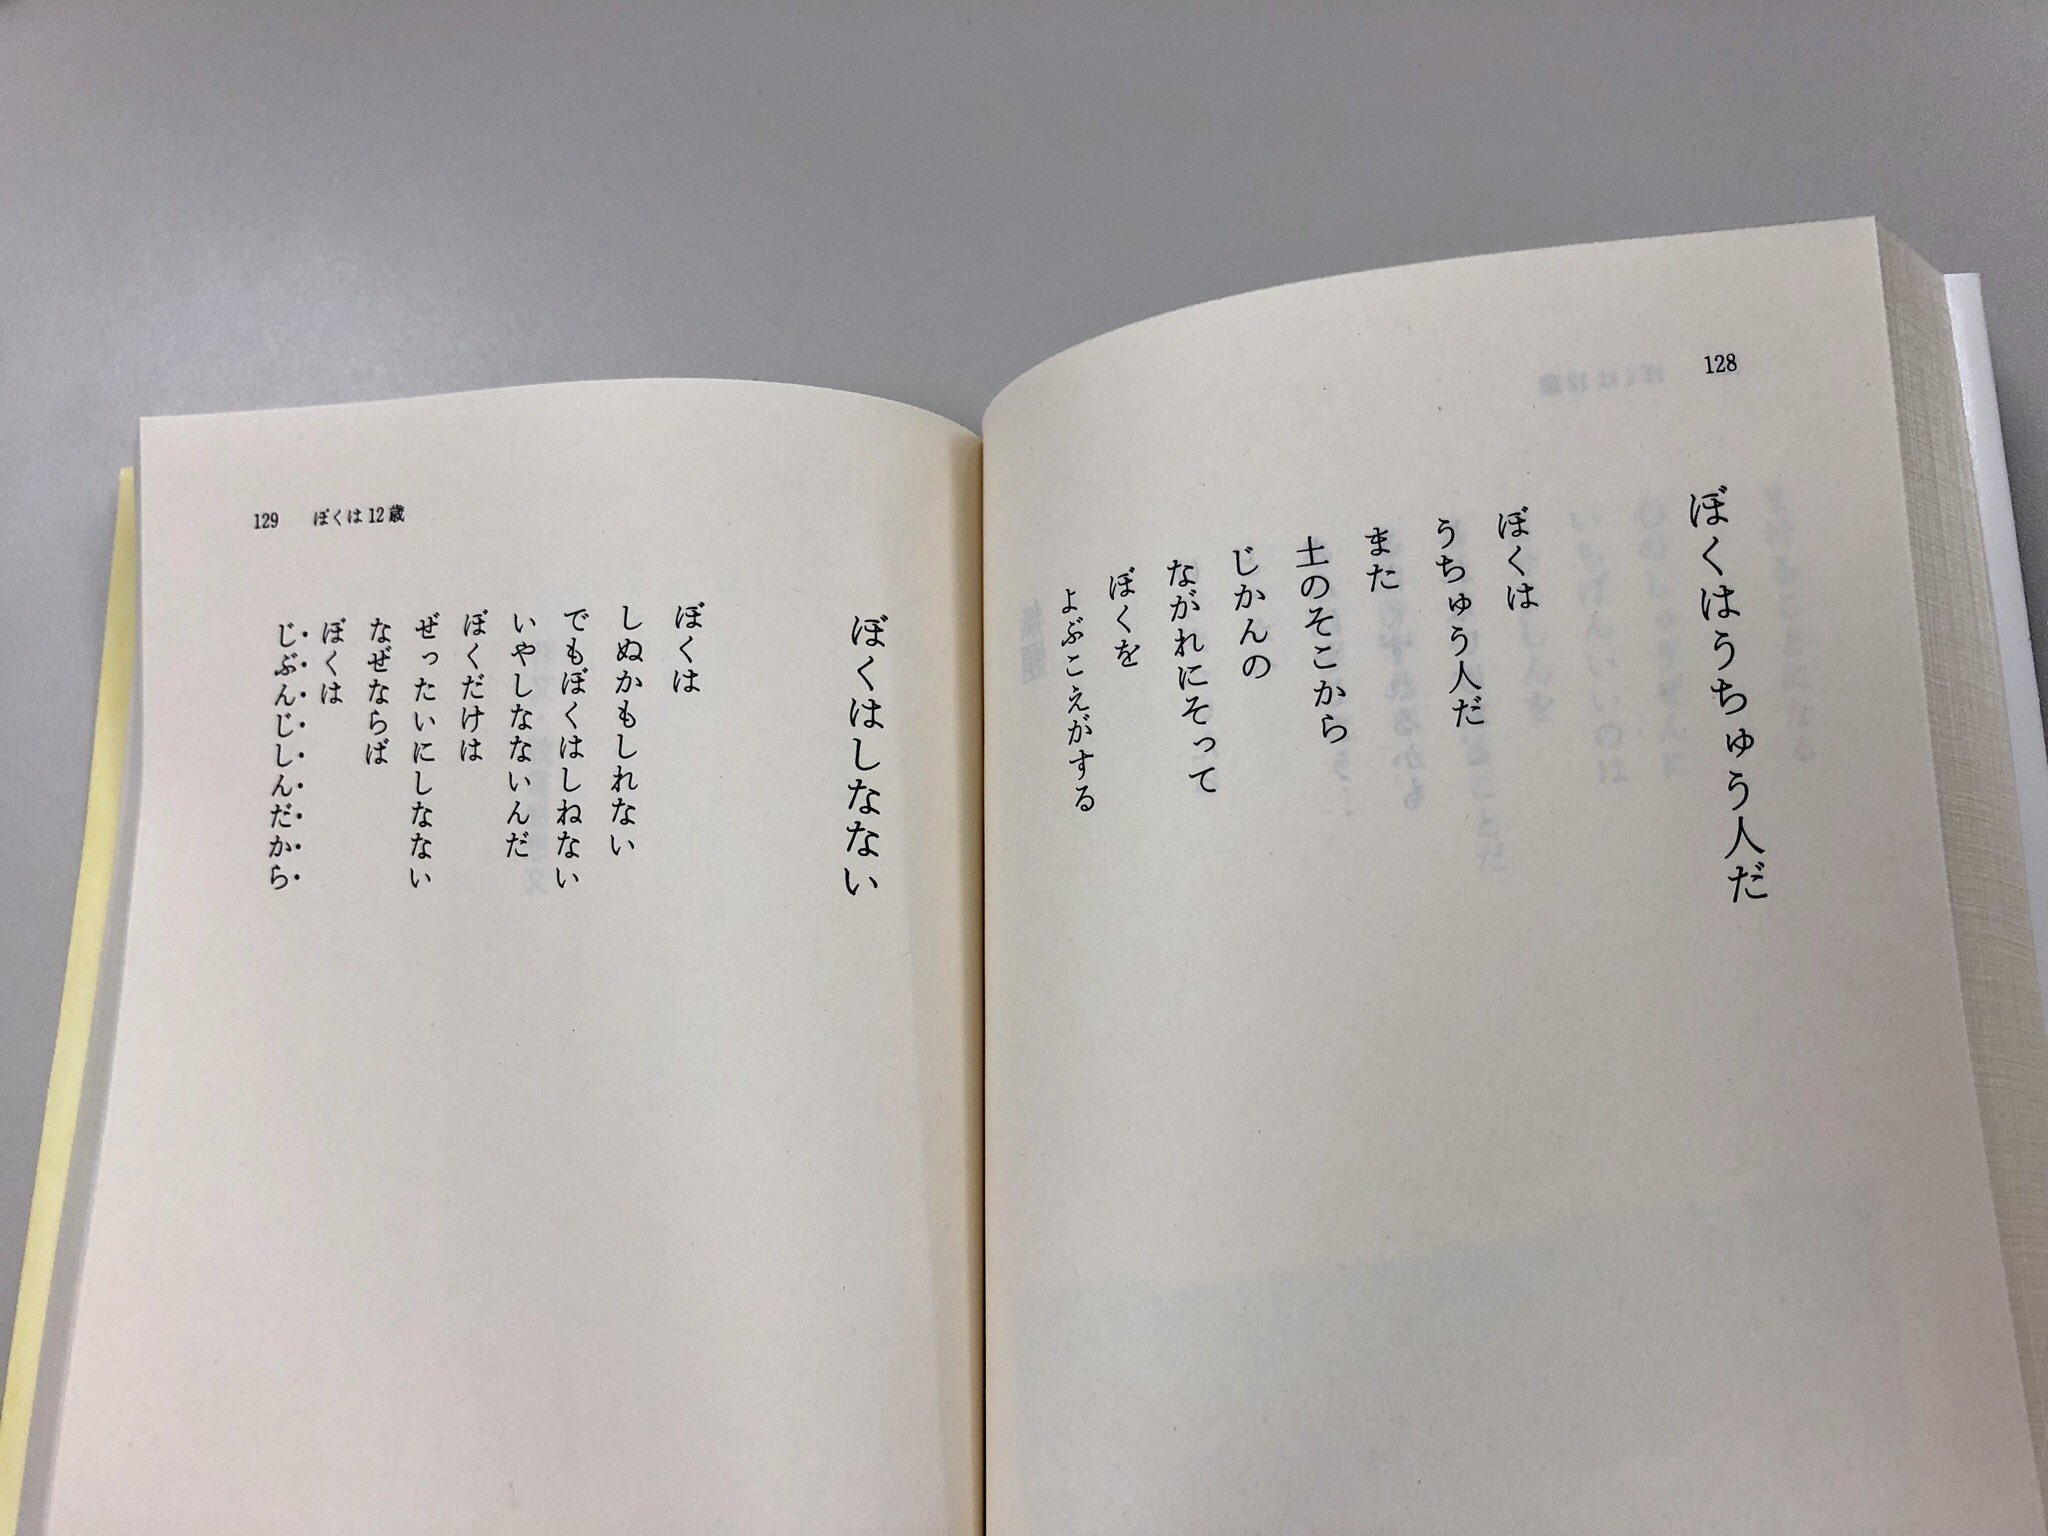 128
ぼくはうちゅう人だ
ぼくは
うちゅう人だ
また
土のそこから
じかんの
ながれにそって
ぼくを
よぶこえがする
129 ぼくは12歳
ぼくはしなない
ぼくは
しぬかもしれない
でもぼくはしねない
いやしなないんだ
ぼくだけは
ぜったいにしなない
なぜならば
ぼくは
じぶんじしんだから